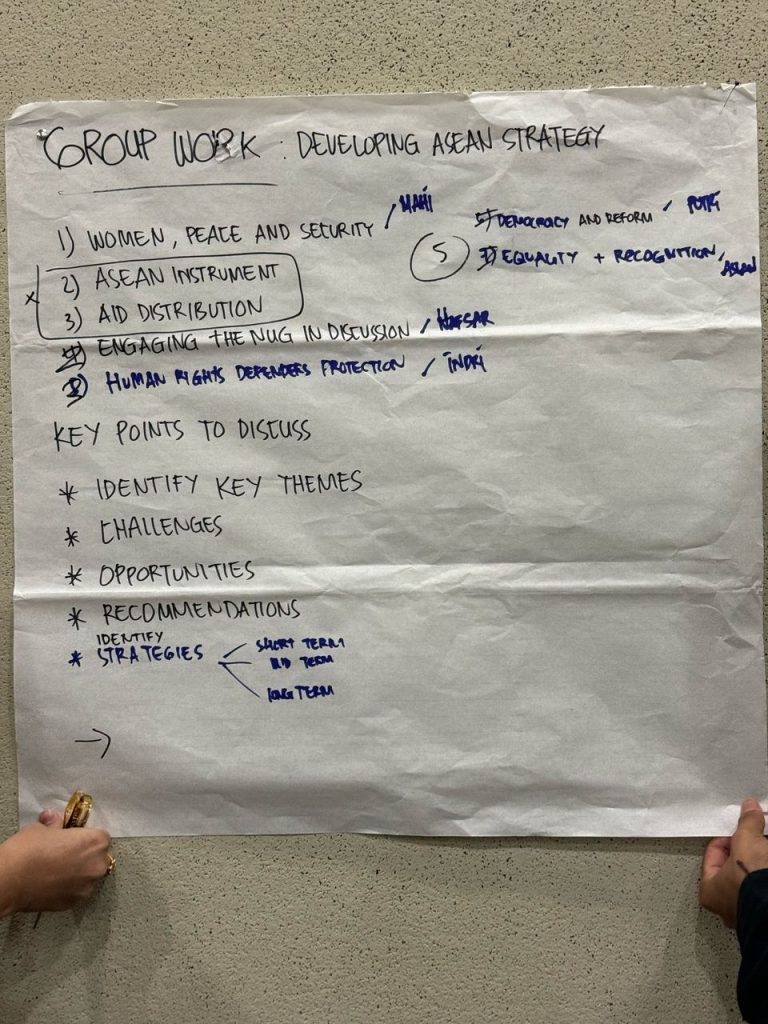 GROUP WORK : DEVELOPING ASEAN STRATEGY
1) WOMEN, PEACE AND SECURITY / MAHI
2) ASEAN INSTRUMENT
3) AID DISTRIBUTION
ENGAGING THE NUG IN DISCUSSION / HAESAR
HUMAN RIGHTS DEFENDERS PROTECTION / INDRI
DEMOCRACY AND REFORM / PUTRI
5 EQUALITY + RECOGNITION /
KEY POINTS TO DISCUSS
* IDENTIFY KEY THEMES
* CHALLENGES
* OPPORTUNITIES
* RECOMMENDATIONS
IDENTIFY
* STRATEGIES
SHORT TERM
MID TERM
LONG TERM
→